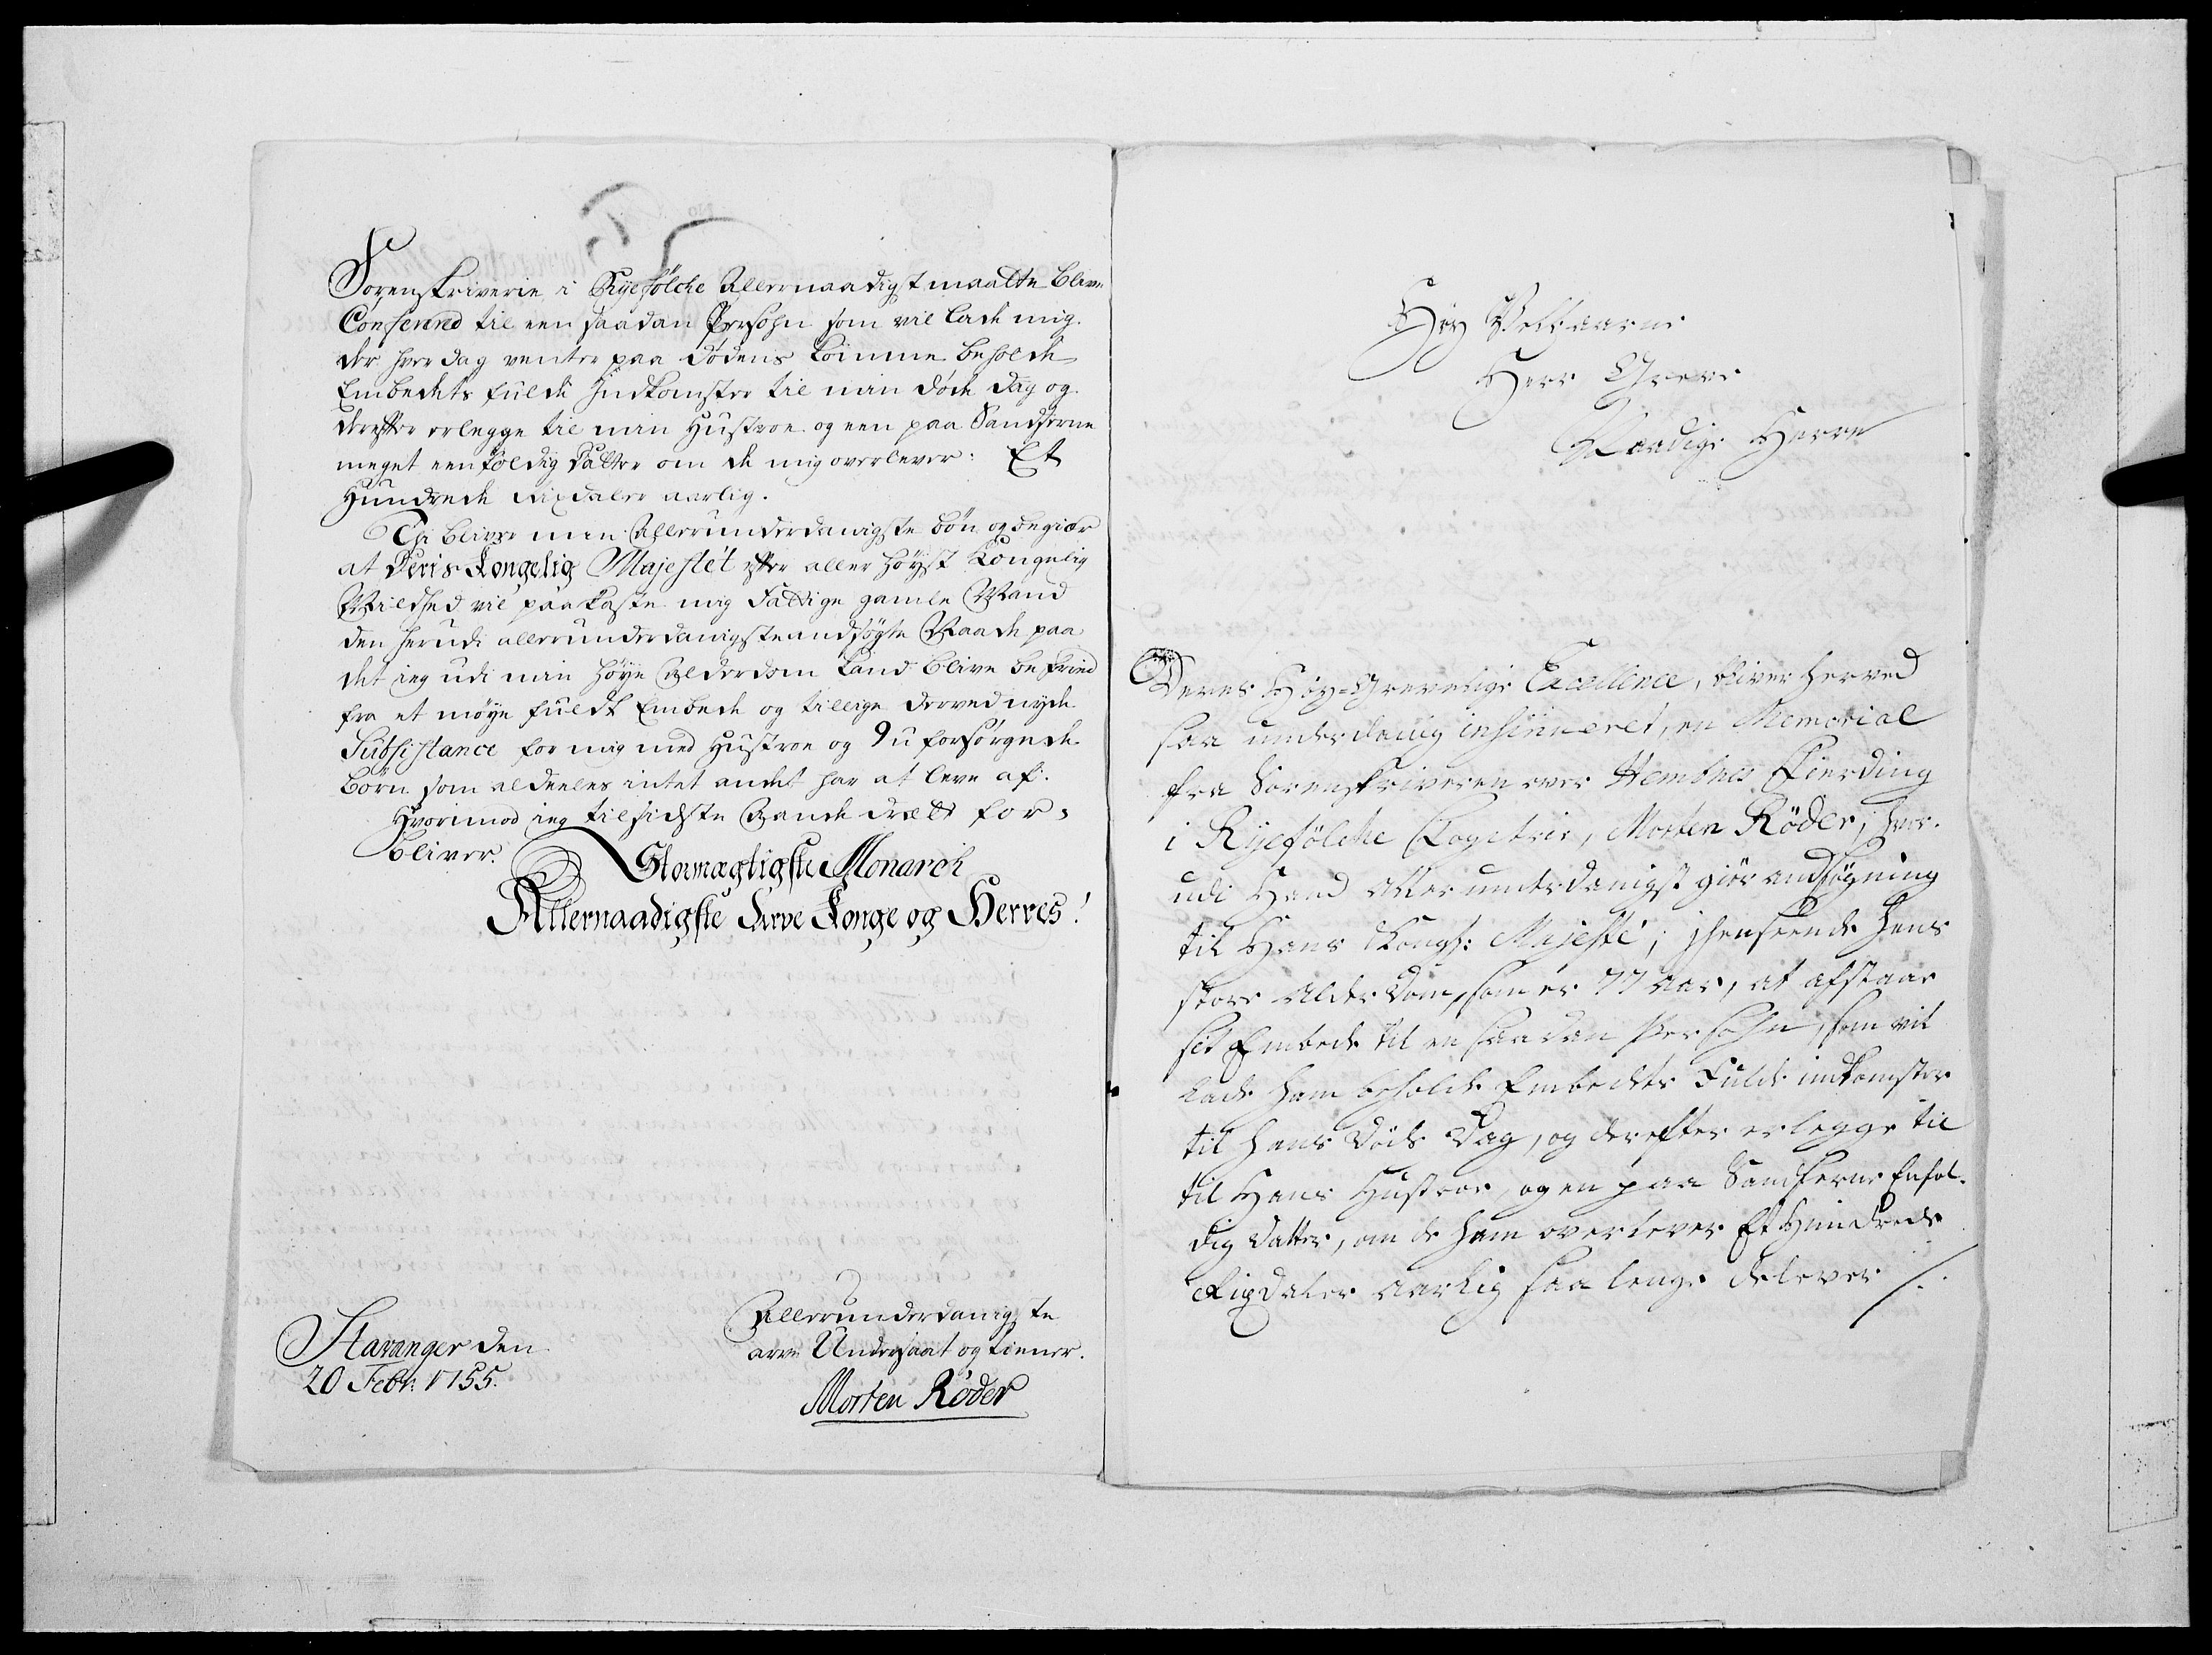 Sorenskriverie i Ryefölche Allernaadigst maatte blive
Conferered til een saadan Persohn som vil lade mig
der hver dag venter paa dödens komme beholde
Embedets fulde Indkomster til min döde dag og
derefter erlegge til min Hustroe og een paa Sandserne
meget eenfoldig datter om de mig overlever: Et
Hundrede Rixdaler aarlig.
Thi bliver min Allerunderdanigste bön og begiær
at Deris Kongelig Majestet efter aller höyst Kongelig
Mildhed vil paakaste mig Fattige gamle Mand
den herudi allerunderdanigste andsögte Naade paa
det ieg udi min höye Alderdom kand blive befried
fra et möye fuldt Embede og tillige derved nyde
Subsistance for mig med Hustroe og 9 u forsörgede
Börn som aldeeles intet andet har at leve af.
Hvorimod ieg til sidste Aande dræt for-
bliver.
Stormægtigste Monarch
Allernaadigste Arve Konge og Herres!
Stavanger den
20 Febr: 1755.
Allerunderdanigste
arve Undersaat og tiener.
Morten Röder
Höy Velbaarne
Herr Greve
Naadige Herre
Deres Höy-Grevelige Excellence, bliver herved
saa underdanig insinueret, en Memorial
fra Sorenskriveren over Hemsnes Fierding
i Ryefölche Fogetrie, Morten Röder, hvor-
udi Hand allerunderdanigst giör andsögning
til Hans Kongl: Majesté, i henseende hans
store Alderdom, som er 77 aar, at afstaae
sit Embede til en saadan Persohn, som vil
lade ham beholde Embedets Fulde indkomster
til hans Döds Dag, og derefter erlegge til
til Hans Hustroe, og en paa Sandserne Enfol-
dig datter, om de ham overlever Et Hundrede
Rixdaler aarlig saa lenge de lever /.